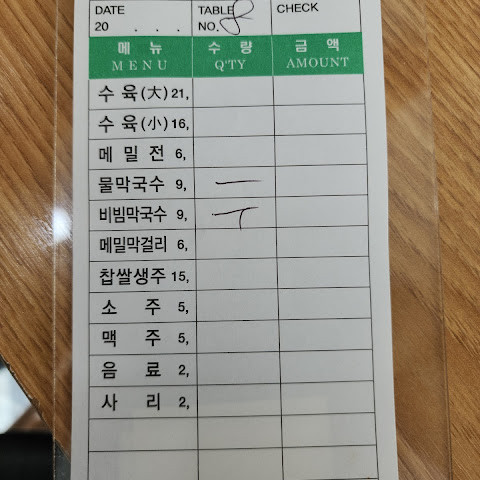 DATE TABLE CHECK
20 . . . NO. 8
메 뉴 수 량 금 액
MENU Q'TY AMOUNT
수 육(大) 21,
수 육(小) 16,
메 밀 전 6,
물막국수 9, 一
비빔막국수 9, T
메밀막걸리 6,
찹쌀생주 15,
소 주 5,
맥 주 5,
음 료 2,
사 리 2,